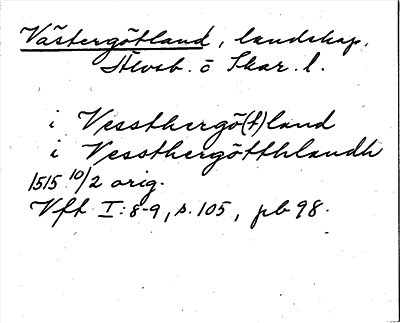 Västergötland, landskap.
Älvsb. o Skar. l.
i Vessthergö(t)land
i Vessthergötthlandh
1515 10/2 orig.
Vft I:8-9, s. 105, pb 98.